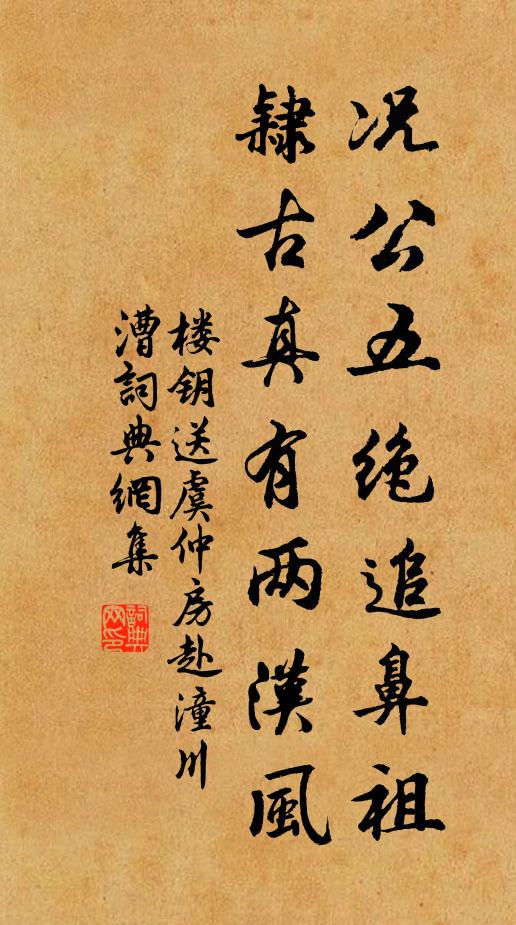 况公五绝追鼻祖
隸古真有两漢風
楼钥送虞仲房赴潼川
漕詞典網集
詞典網印